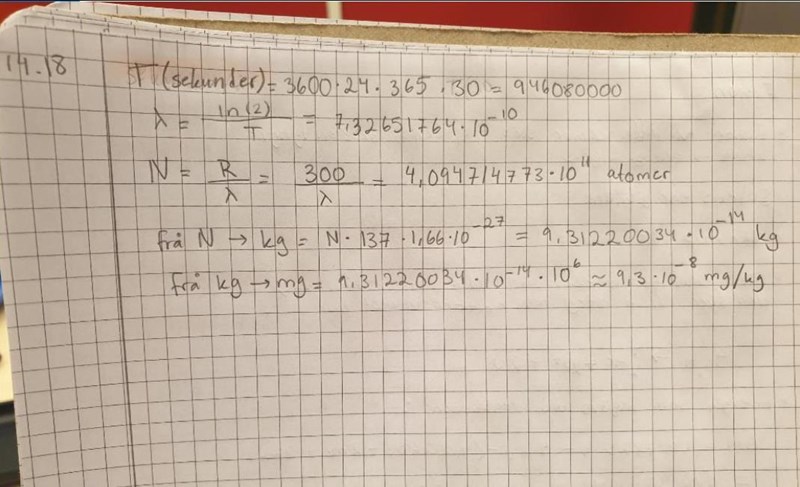 14.18
T (sekunder) = 3600·24·365·30 = 946080000
λ = ln(2)/T = 7,32651764·10^-10
N = R/λ = 300/λ = 4,094714773·10^11 atomer
frå N → kg = N·137·1,66·10^-27 = 9,31220034·10^-14 kg
frå kg → mg = 9,31220034·10^-14·10^6 ≈ 9,3·10^-8 mg/kg